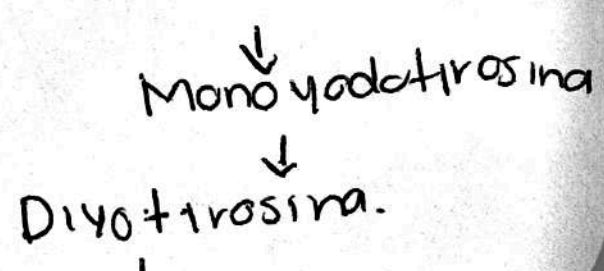 ↓
Monoyodotirosina
↓
Diyotirosina.